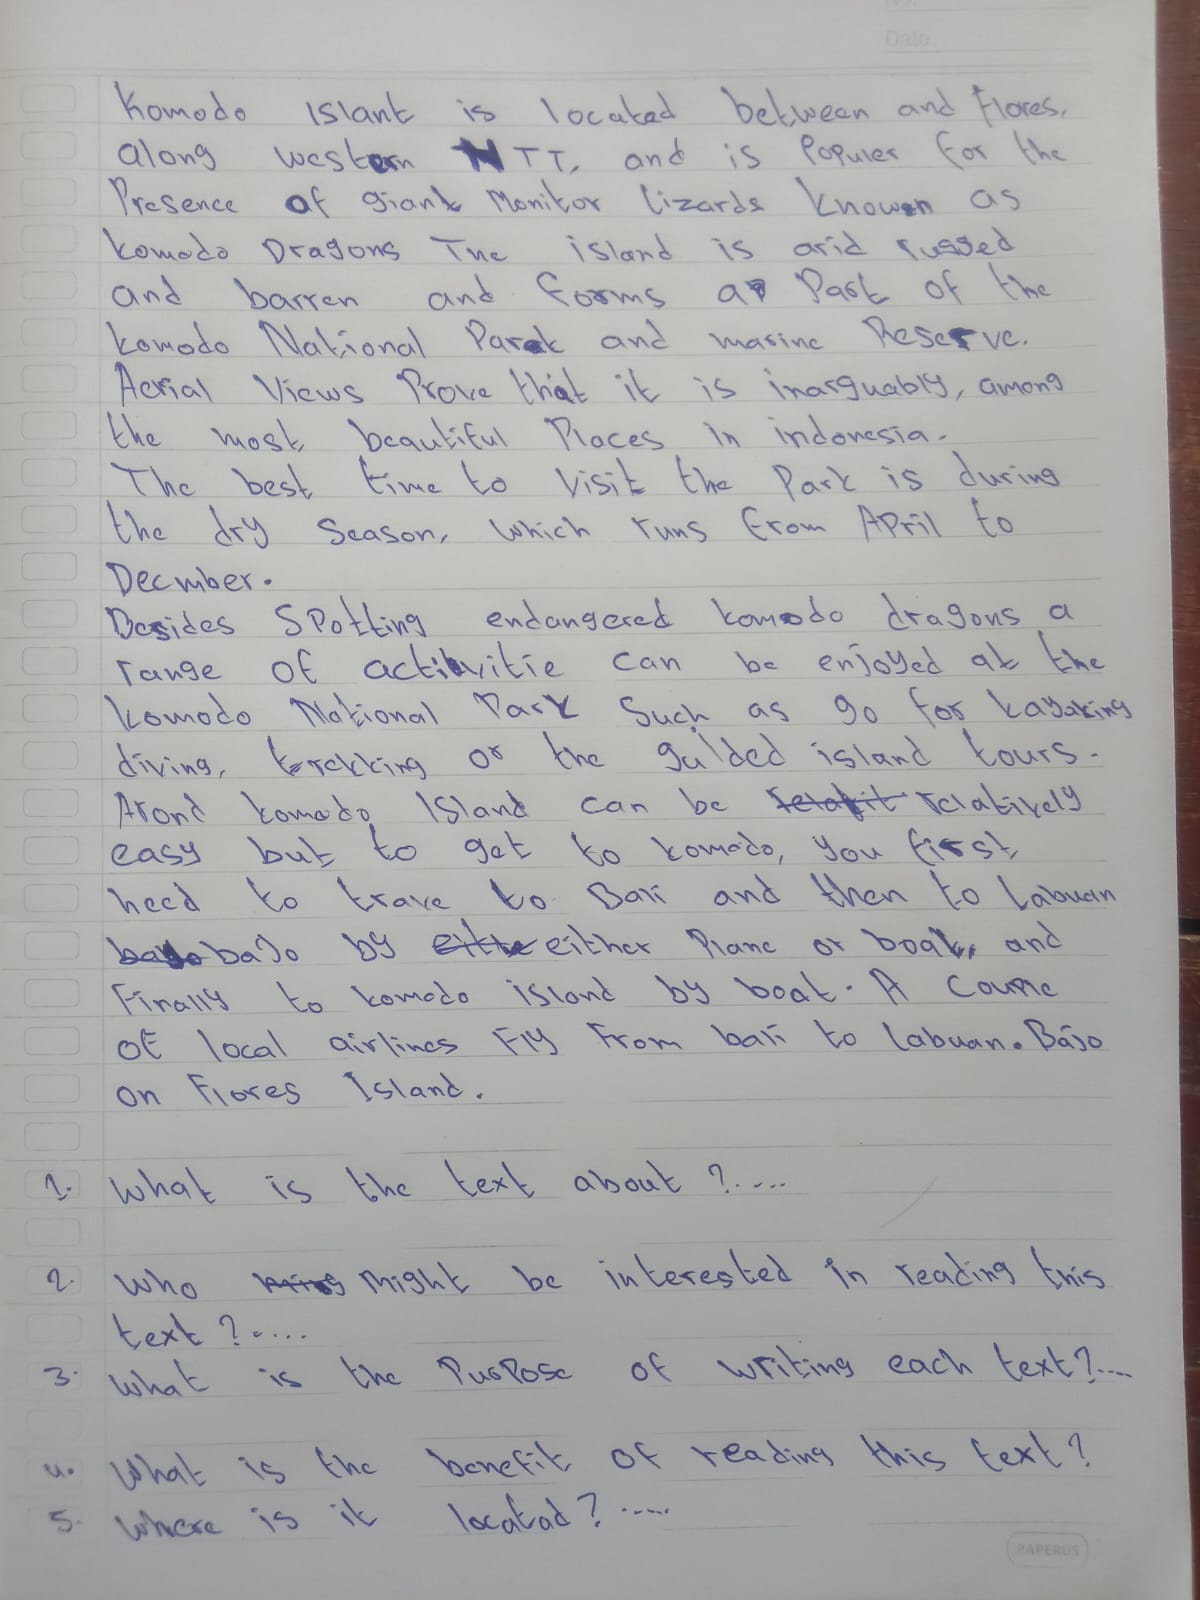 No.
Date
Komodo Islant is located between and Flores,
along western NTT, and is Populer for the
Presence of giant Monitor lizards knowen as
komodo Dragons The island is arid rugged
and barren and forms a Part of the
komodo National Park and marine Reserve.
Aerial Views Prove that it is inarguably, among
the most beautiful Places in indonesia.
The best time to Visit the Park is during
the dry Season, which runs from April to
Decmber.
Besides Spotting endangered komodo dragons a
range of activitie can be enjoyed at the
komodo National Park Such as go for kayaking
diving, trekking or the guided island tours.
Arond komodo Island can be relatively
easy but to get to komodo, you first,
need to trave to Bali and then to Labuan
bajo by either Plane or boat, and
Finally to komodo island by boat. A Couple
of local airlines Fly From bali to Labuan. Bajo
on Flores Island.
1. What is the text about ?....
2. Who might be interested in reading this
text ?.....
3. What is the PurPose of writing each text?....
4. What is the benefit of reading this text?
5. Where is it locatad? .....
PAPERUS